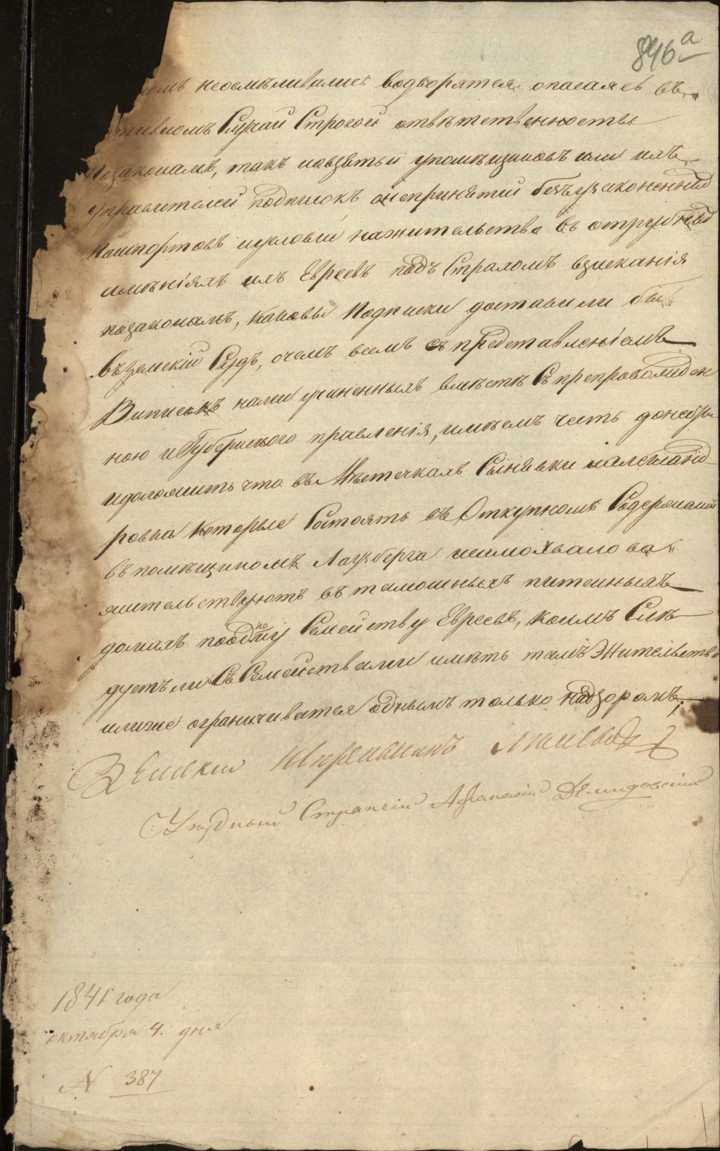 846а
неосмѣливались водворятся опасаясь въ
случаи строгой отвѣтственности
позаконамъ, такъ и овзятьи упомѣщиковъ или ихъ
управителей подписокъ онепринятіи безъ узаконенныхъ
пашпортовъ и условій нажительство въ
имѣніяхъ ихъ Евреевъ подъ страхомъ взисканія
позаконамъ, каковы подписки доставили бы
въ земскій Судъ, очемъ всемъ съ представленіемъ
Виписокъ нами учиненныхъ вмѣстѣ съ препровожден
ною и Губернского правленія, имѣемъ честь донесть
и доложить что въ мѣстечкахъ Синявки
ровка которые состоятъ въ Откупномъ Содержаніи
въ помѣщиковъ
жительствуютъ въ тамошныхъ питейныхъ
домахъ поодному семейству Евреевъ, коимъ слѣ
дуетъ ли съ семействами имѣть тамъ жительство
или же ограничиватся однымъ только надзоромъ,
Земскій Исправникъ
Уѣздный Стряпчій Афанасій
1841 года
октября 4. дня
N 387